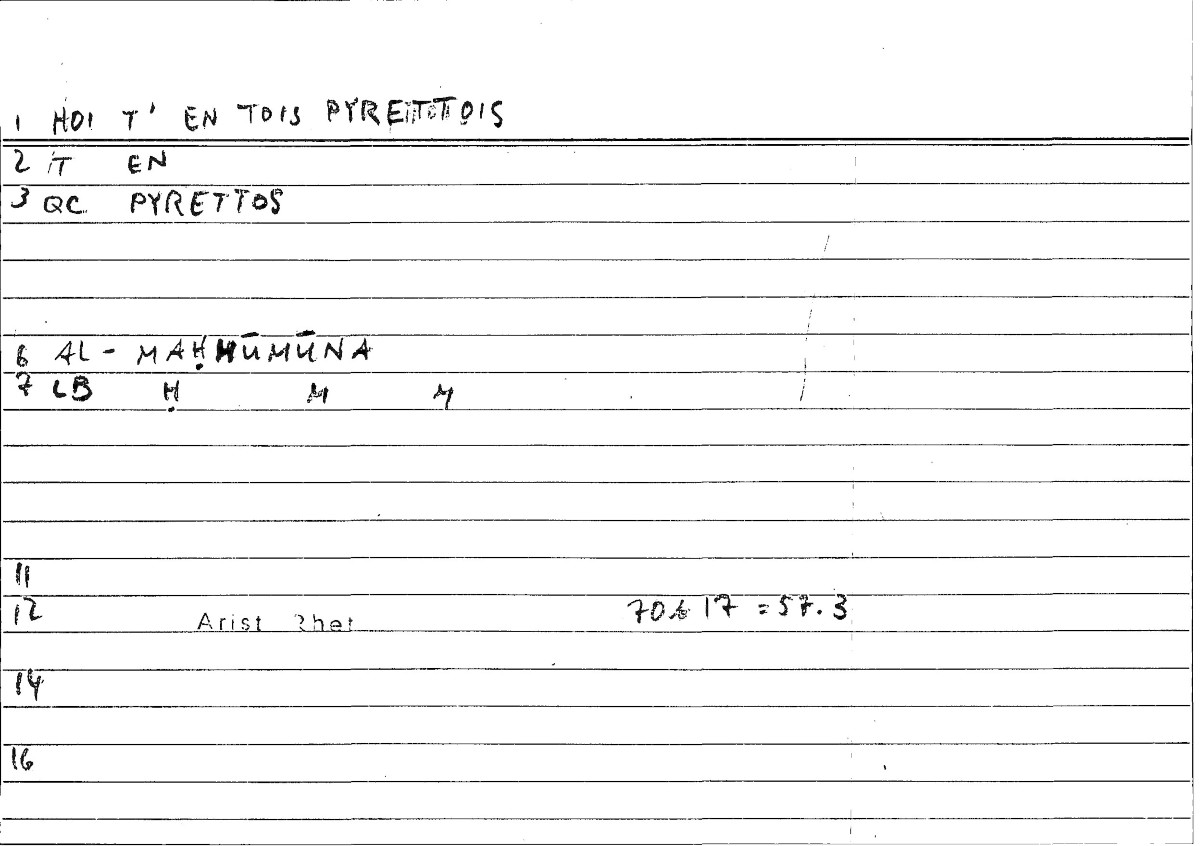 1 HOI T' EN TOIS PYRETTOIS
2 IT EN
3 QC PYRETTOS
6 AL-MAḤMŪMŪNA
7 LB Ḥ M M
11
12 Arist Rhet 70b 17 = 57.3
14
16